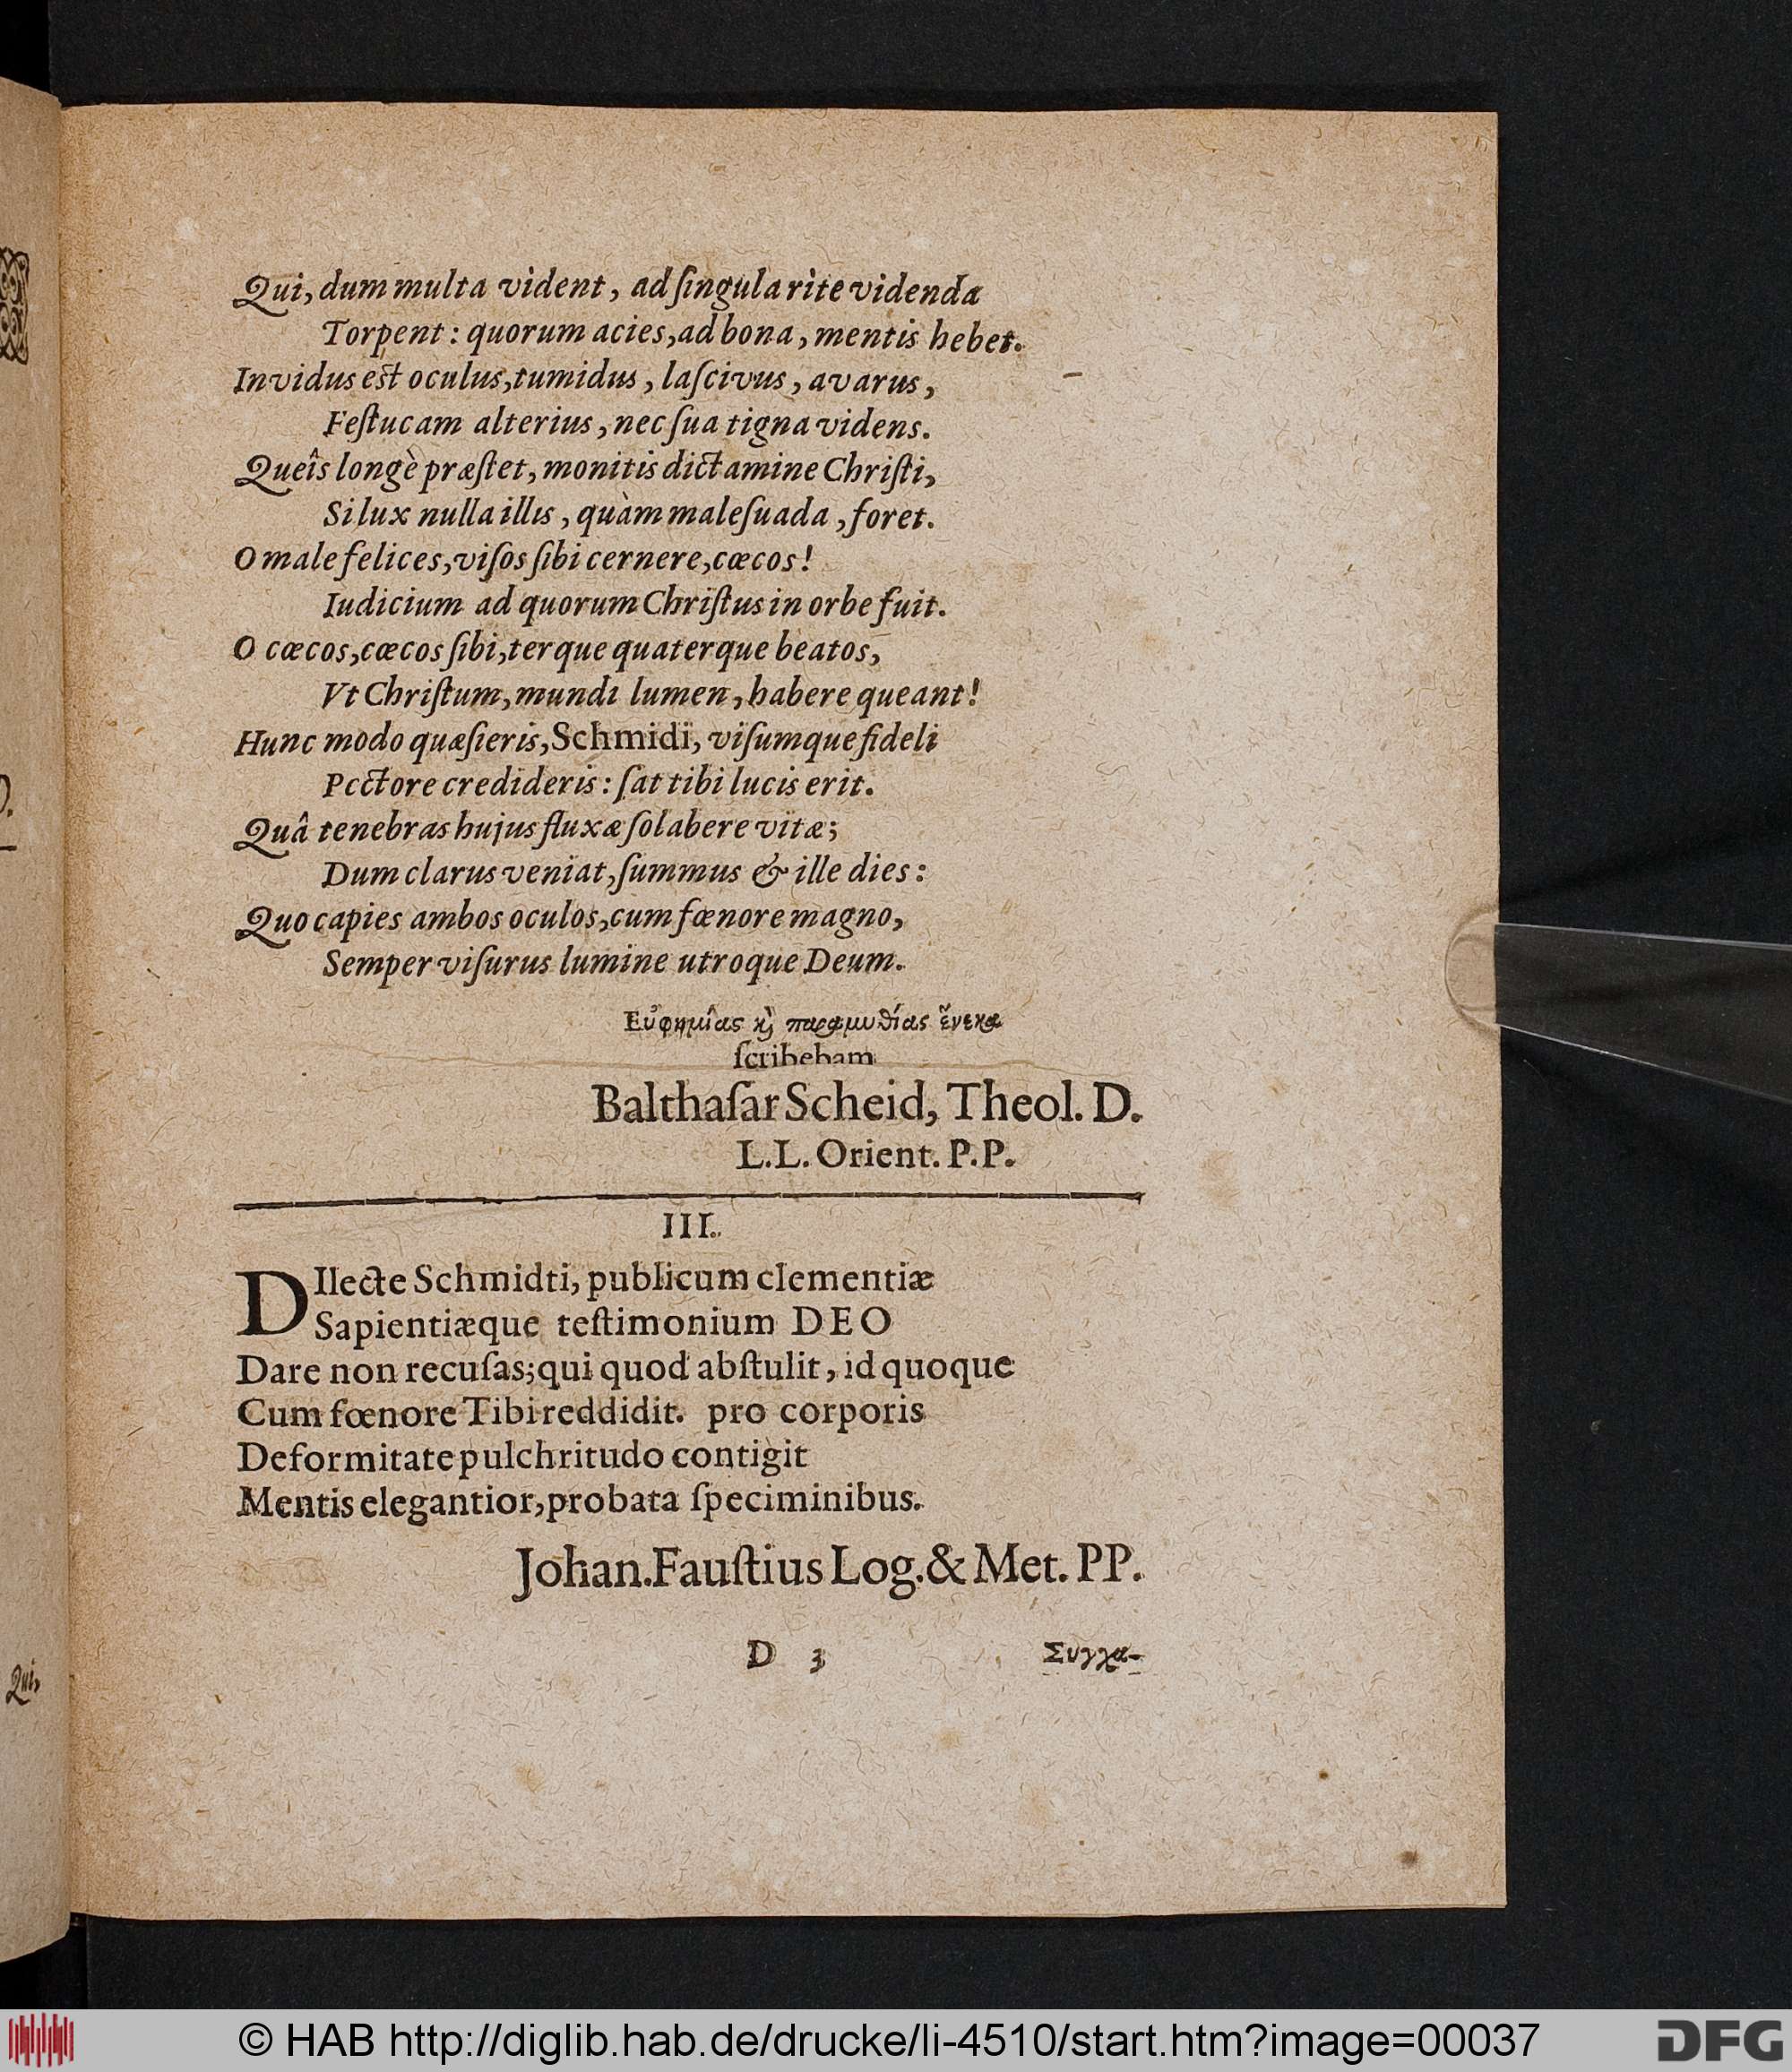 Qui, dum multa vident, ad ſingula rìte videnda
Torpent: quorum acies, ad bona, mentis hebet.
Invidus est oculus, tumidus, laſcivus, avarus,
Feſtucam alterius, nec ſua tigna videns.
Queîs longè præſtet, monitis dictamine Chriſti,
Si lux nulla illis, quàm maleſuada, foret.
O male felices, viſos ſibi cernere, cœcos!
Iudicium ad quorum Chriſtus in orbe fuit.
O cœcos, cœcos ſibi, terque quaterque beatos,
Vt Chriſtum, mundi lumen, habere queant!
Hunc modo quæſieris, Schmidi, viſumque fideli
Pectore credideris: ſat tibi lucis erit.
Quâ tenebras hujus fluxæ ſolabere vitæ;
Dum clarus veniat, ſummus & ille dies:
Quo capies ambos oculos, cum fœnore magno,
Semper viſurus lumine utroque Deum.
Εὐφημίας ϗ̀ παραμυθίας ἕνεκα
ſcribebam
Balthaſar Scheid, Theol. D.
L.L. Orient. P.P.
III.
DIlecte Schmidti, publicum clementiæ
Sapientiæque teſtimonium DEO
Dare non recuſas; qui quod abſtulit, id quoque
Cum fœnore Tibi reddidit. pro corporis
Deformitate pulchritudo contigit
Mentis elegantior, probata ſpeciminibus.
Johan. Fauſtius Log. & Met. PP.
D 3
Συγχα-
Qui,
© HAB http://diglib.hab.de/drucke/li-4510/start.htm?image=00037
DFG